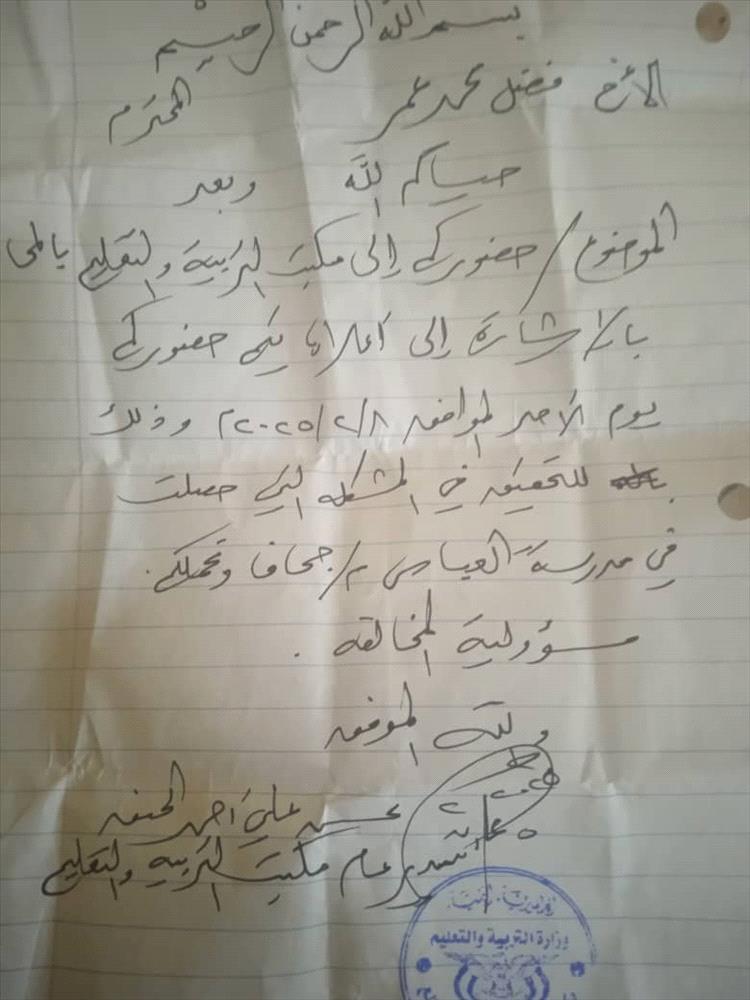 بسم الله الرحمن الرحيم
الأخ فضل محمد عمر المحترم
حياكم الله وبعد
الموضوع / حضوركم إلى مكتب التربية والتعليم بالمحا
بالإشارة إلى أعلاه يتم حضوركم
يوم الأحد الموافق ٢٠٢٥/٢/٨م وذلك
للتحقيق في المشكلة التي حصلت
في مدرسة العياسى م/جحاف وتحملكم
مسؤولية المخالفة .
والله الموفق
علي أحمد
عام مكتب التربية والتعليم
وزارة التربية والتعليم